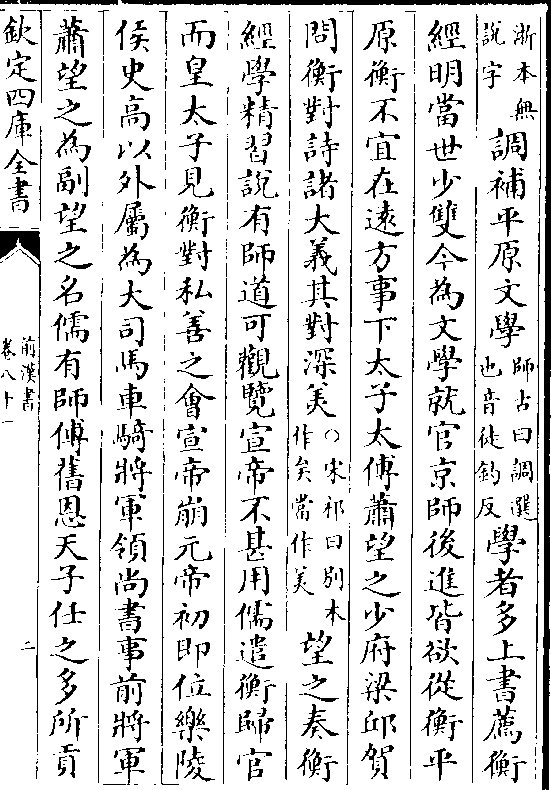 浙本無
說字
調補平原文學
師古曰調選
也音徒釣反
學者多上書薦衡
經明當世少雙今為文學就官京師後進皆欲從衡平
原衡不宜在遠方事下太子太傅蕭望之少府梁邱賀
問衡對詩諸大義其對深美
○宋祁曰別本
作矣當作美
望之奏衡
經學精習說有師道可觀覽宣帝不甚用儒遣衡歸官
而皇太子見衡對私善之會宣帝崩元帝初即位樂陵
侯史高以外屬為大司馬車騎將軍領尚書事前將軍
蕭望之為副望之名儒有師傅舊恩天子任之多所貢
欽定四庫全書
前漢書
卷八十一
二